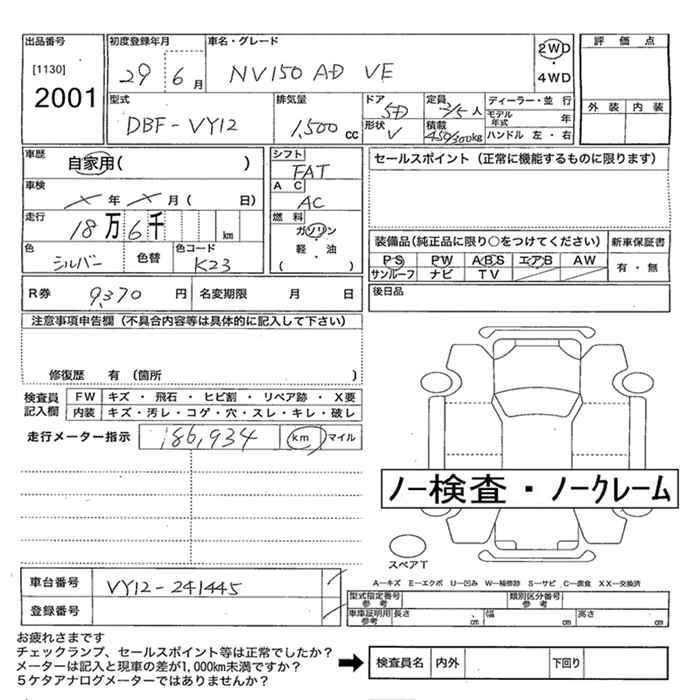 出品番号 初度登録年月 車名・グレード 評価点
[1130] 29 6月 NV150 AD VE 2WD
2001 4WD
型式 排気量 ドア 5D 定員 2/5人 ディーラー・並行 外装 内装
DBF-VY12 1,500cc 形状 V 積載 450/300kg モデル年式 年
ハンドル 左・右
車歴 自家用( ) シフト FAT セールスポイント(正常に機能するものに限ります)
車検 メ年メ月( 日) AC AC
走行 18万6千 km 燃料 ガソリン
軽・油
( )
色 シルバー 色替 色コード K23
装備品(純正品に限り○をつけてください) 新車保証書
PS PW ABS エアB AW 有・無
サンルーフ ナビ TV
R券 9,370円 名変期限 月 日 後日品
注意事項申告欄(不具合内容等は具体的に記入して下さい)
修復歴 有(箇所 )
検査員記入欄 FW キズ・飛石・ヒビ割・リペア跡・X要
内装 キズ・汚レ・コゲ・穴・スレ・キレ・破レ
走行メーター指示 186,934 km マイル
ノー検査・ノークレーム
スペアT
A―キズ E―エクボ U―凹み W―補修跡 S―サビ C―腐食 XX―交換済
車台番号 VY12-241445
登録番号
型式指定番号 参考 類別区分番号 参考
車庫証明用 参考 長さ cm 幅 cm 高さ cm
お疲れさまです
チェックランプ、セールスポイント等は正常でしたか?
メーターは記入と現車の差が1,000km未満ですか?
5ケタアナログメーターではありませんか?
検査員名 内外 下回り